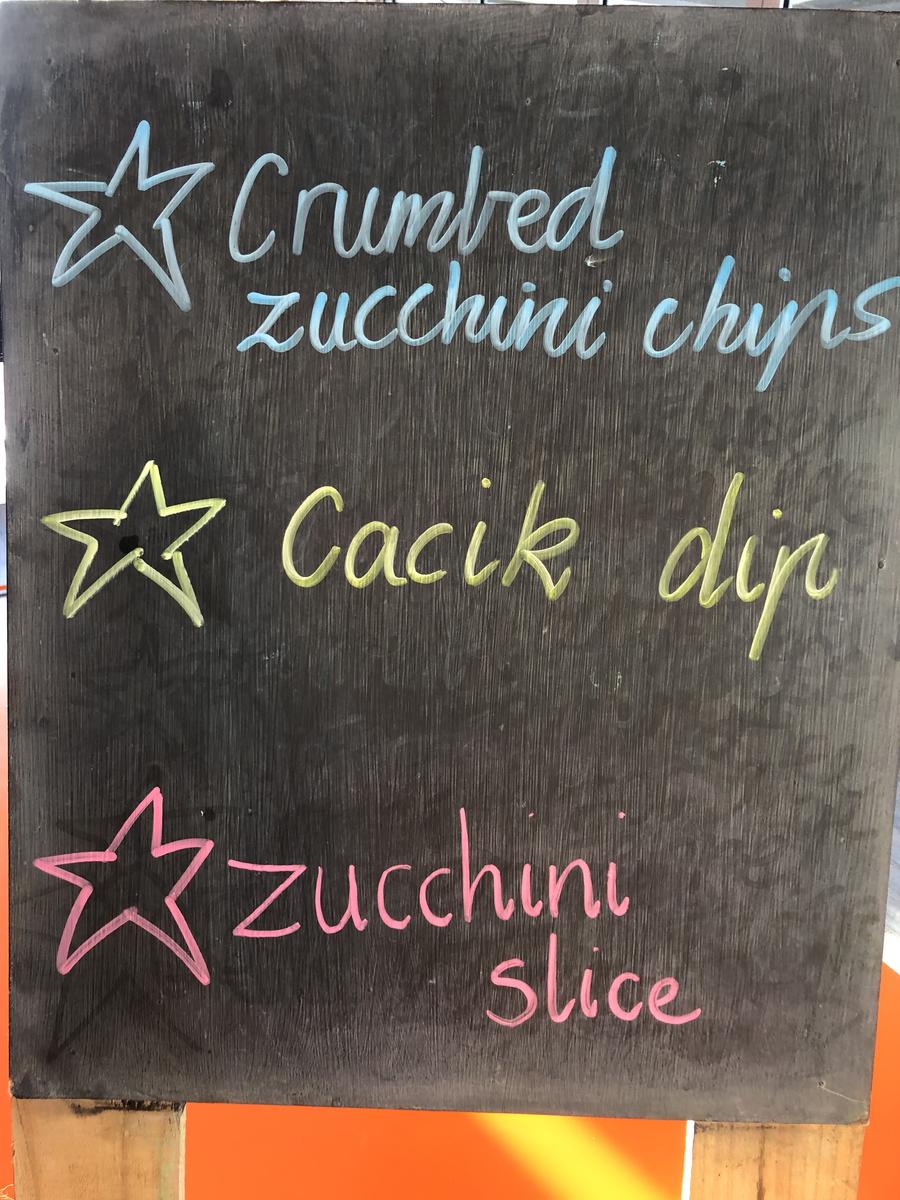 Crumbed
zucchini chips
Cacik dip
zucchini
slice